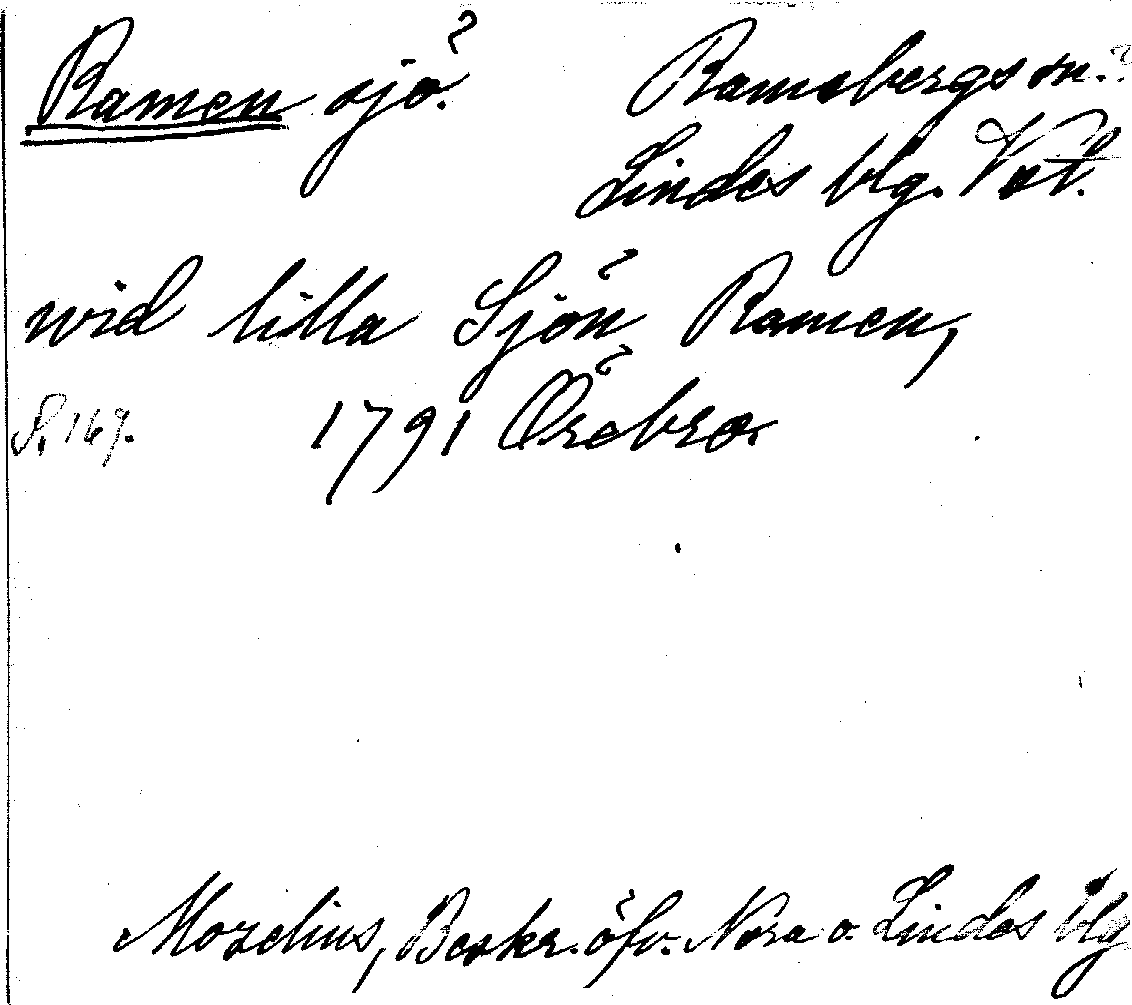 Ramen sjö. Ramsbergs sn.?
Lindes blg. Vstl.
wid lilla Sjön Ramen,
S. 169. 1791 Örebro
Mozelius, Beskr. öfv. Nora o. Lindes blg